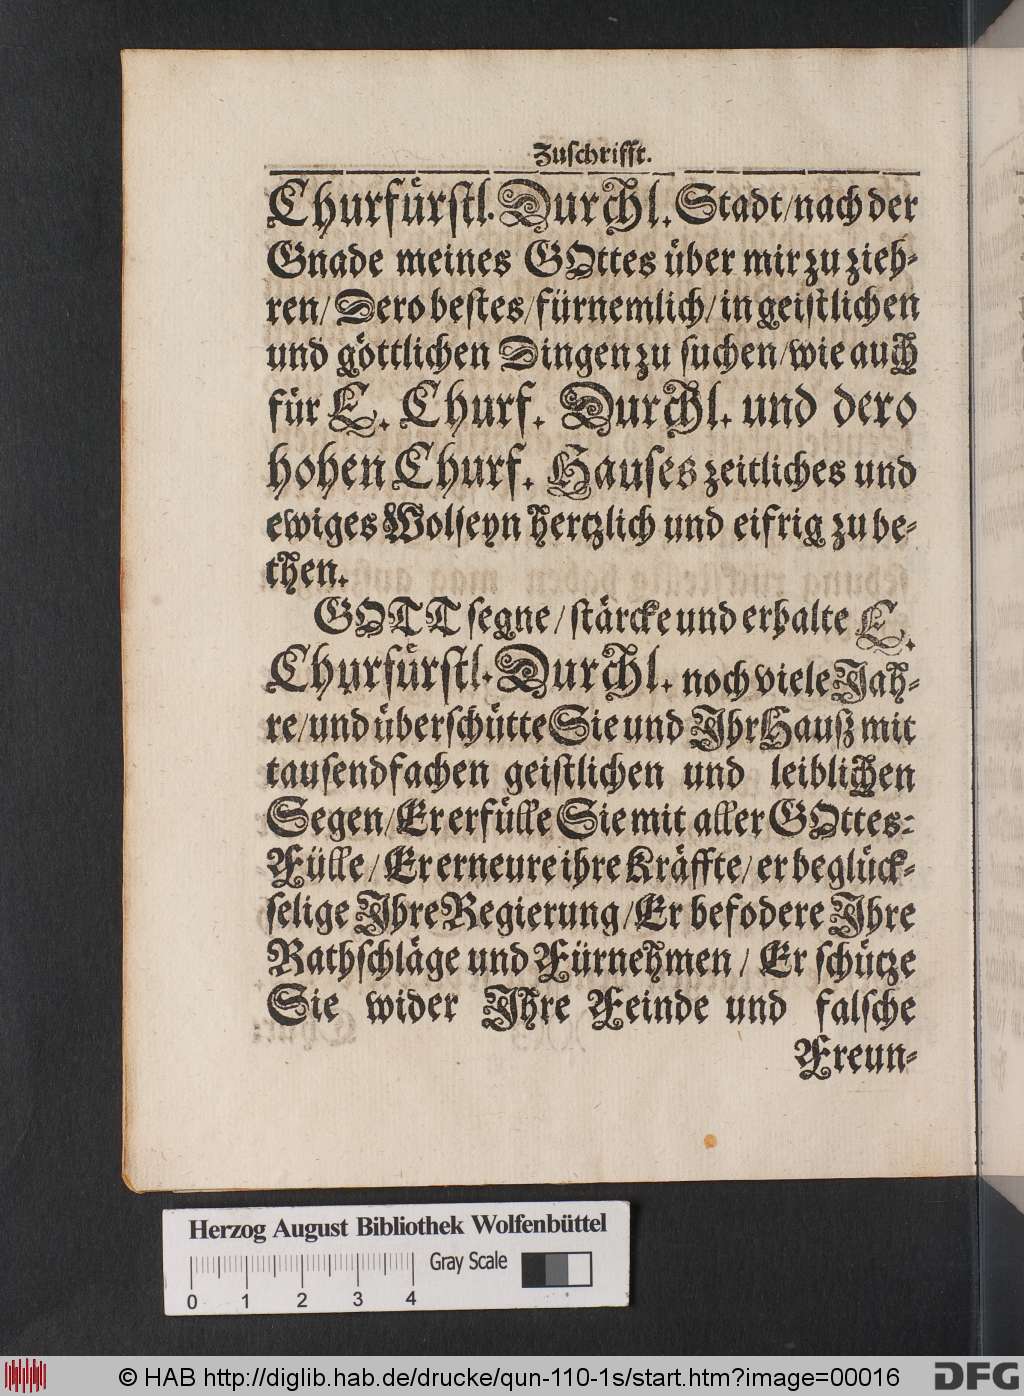 Zuschrifft.
Churfürstl. Durchl. Stadt/ nach der
Gnade meines GOttes über mir zu zieh-
ren/ Dero bestes/ fürnemlich/ in geistlichen
und göttlichen Dingen zu suchen/ wie auch
für E. Churf. Durchl. und dero
hohen Churf. Hauses zeitliches und
ewiges Wolseyn hertzlich und eifrig zu be-
then.
GOTT segne/ stärcke und erhalte E.
Churfürstl. Durchl. noch viele Jah-
re/ und überschütte Sie und Ihr Hauß mit
tausendfachen geistlichen und leiblichen
Segen/ Er erfülle Sie mit aller GOttes-
Fülle/ Er erneure ihre Kräffte/ er beglück-
selige Ihre Regierung/ Er befodere Ihre
Rathschläge und Fürnehmen/ Er schütze
Sie wider Ihre Feinde und falsche
Freun-
Herzog August Bibliothek Wolfenbüttel
Gray Scale
0 1 2 3 4
© HAB http://diglib.hab.de/drucke/qun-110-1s/start.htm?image=00016
DFG